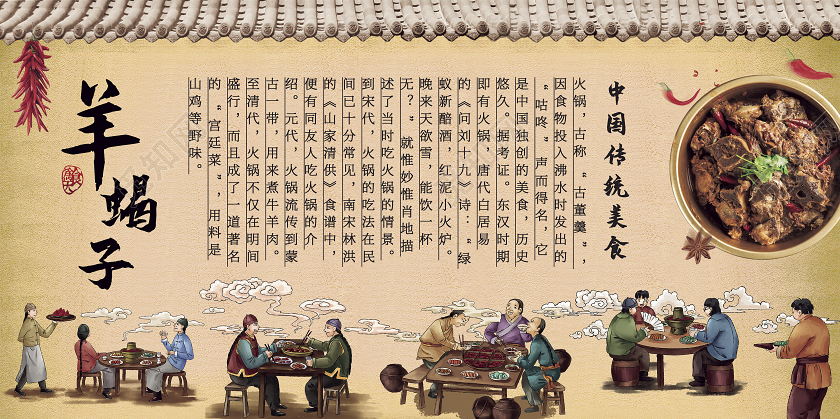 中国传统美食
火锅，古称“古董羹”，
因食物投入沸水时发出的
“咕咚”声而得名，它
是中国独创的美食，历史
悠久。据考证。东汉时期
即有火锅，唐代白居易
的《问刘十九》诗：“绿
蚁新醅酒，红泥小火炉。
晚来天欲雪，能饮一杯
无？”就惟妙惟肖地描
述了当时吃火锅的情景。
到宋代，火锅的吃法在民
间已十分常见，南宋林洪
的《山家清供》食谱中，
便有同友人吃火锅的介
绍。元代，火锅流传到蒙
古一带，用来煮牛羊肉。
至清代，火锅不仅在明间
盛行，而且成了一道著名
的“宫廷菜”，用料是
山鸡等野味。
羊蝎子